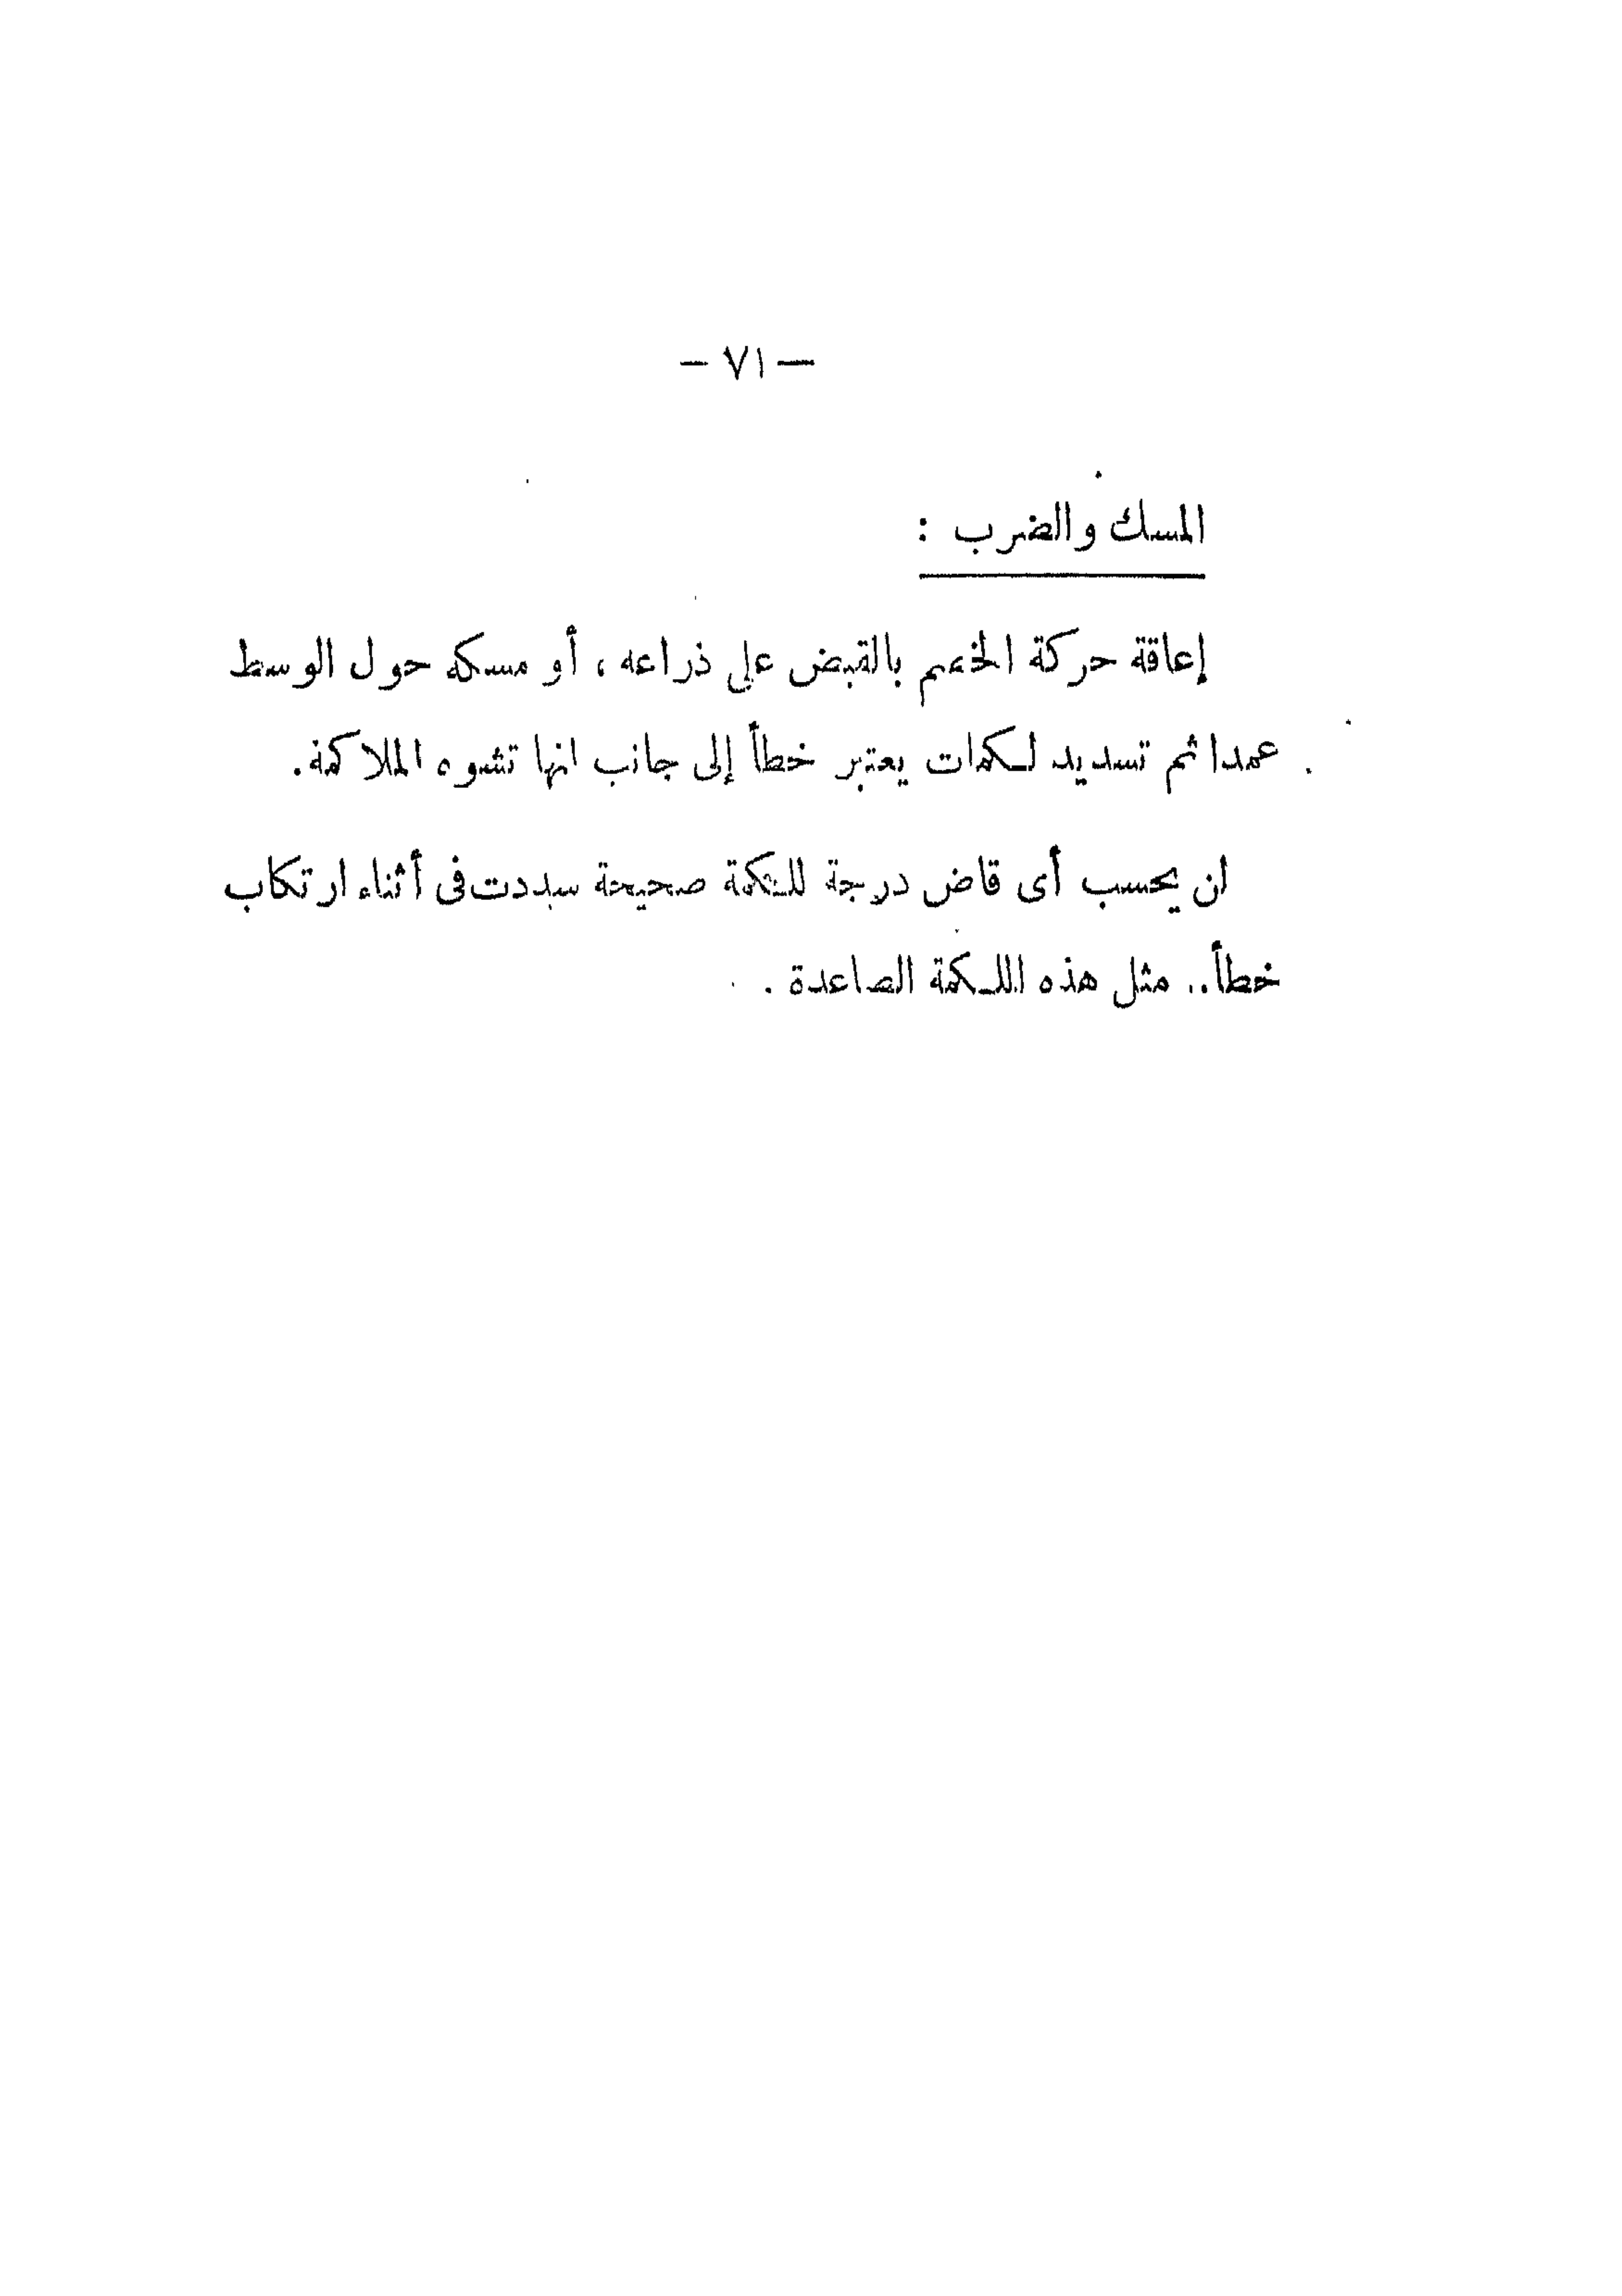 — ٧١ —
المسك والضرب :
إعاقة حركة الخصم بالقبض على ذراعه ، أو مسكه حول الوسط
عمدا ثم تسديد لكمات يعتبر خطأ إلى جانب انها تشوه الملاكمة.
لن يحسب أى قاض درجة للكمة صحيحة سددت فى أثناء ارتكاب
خطأ.. مثل هذه اللكمة الصاعدة .